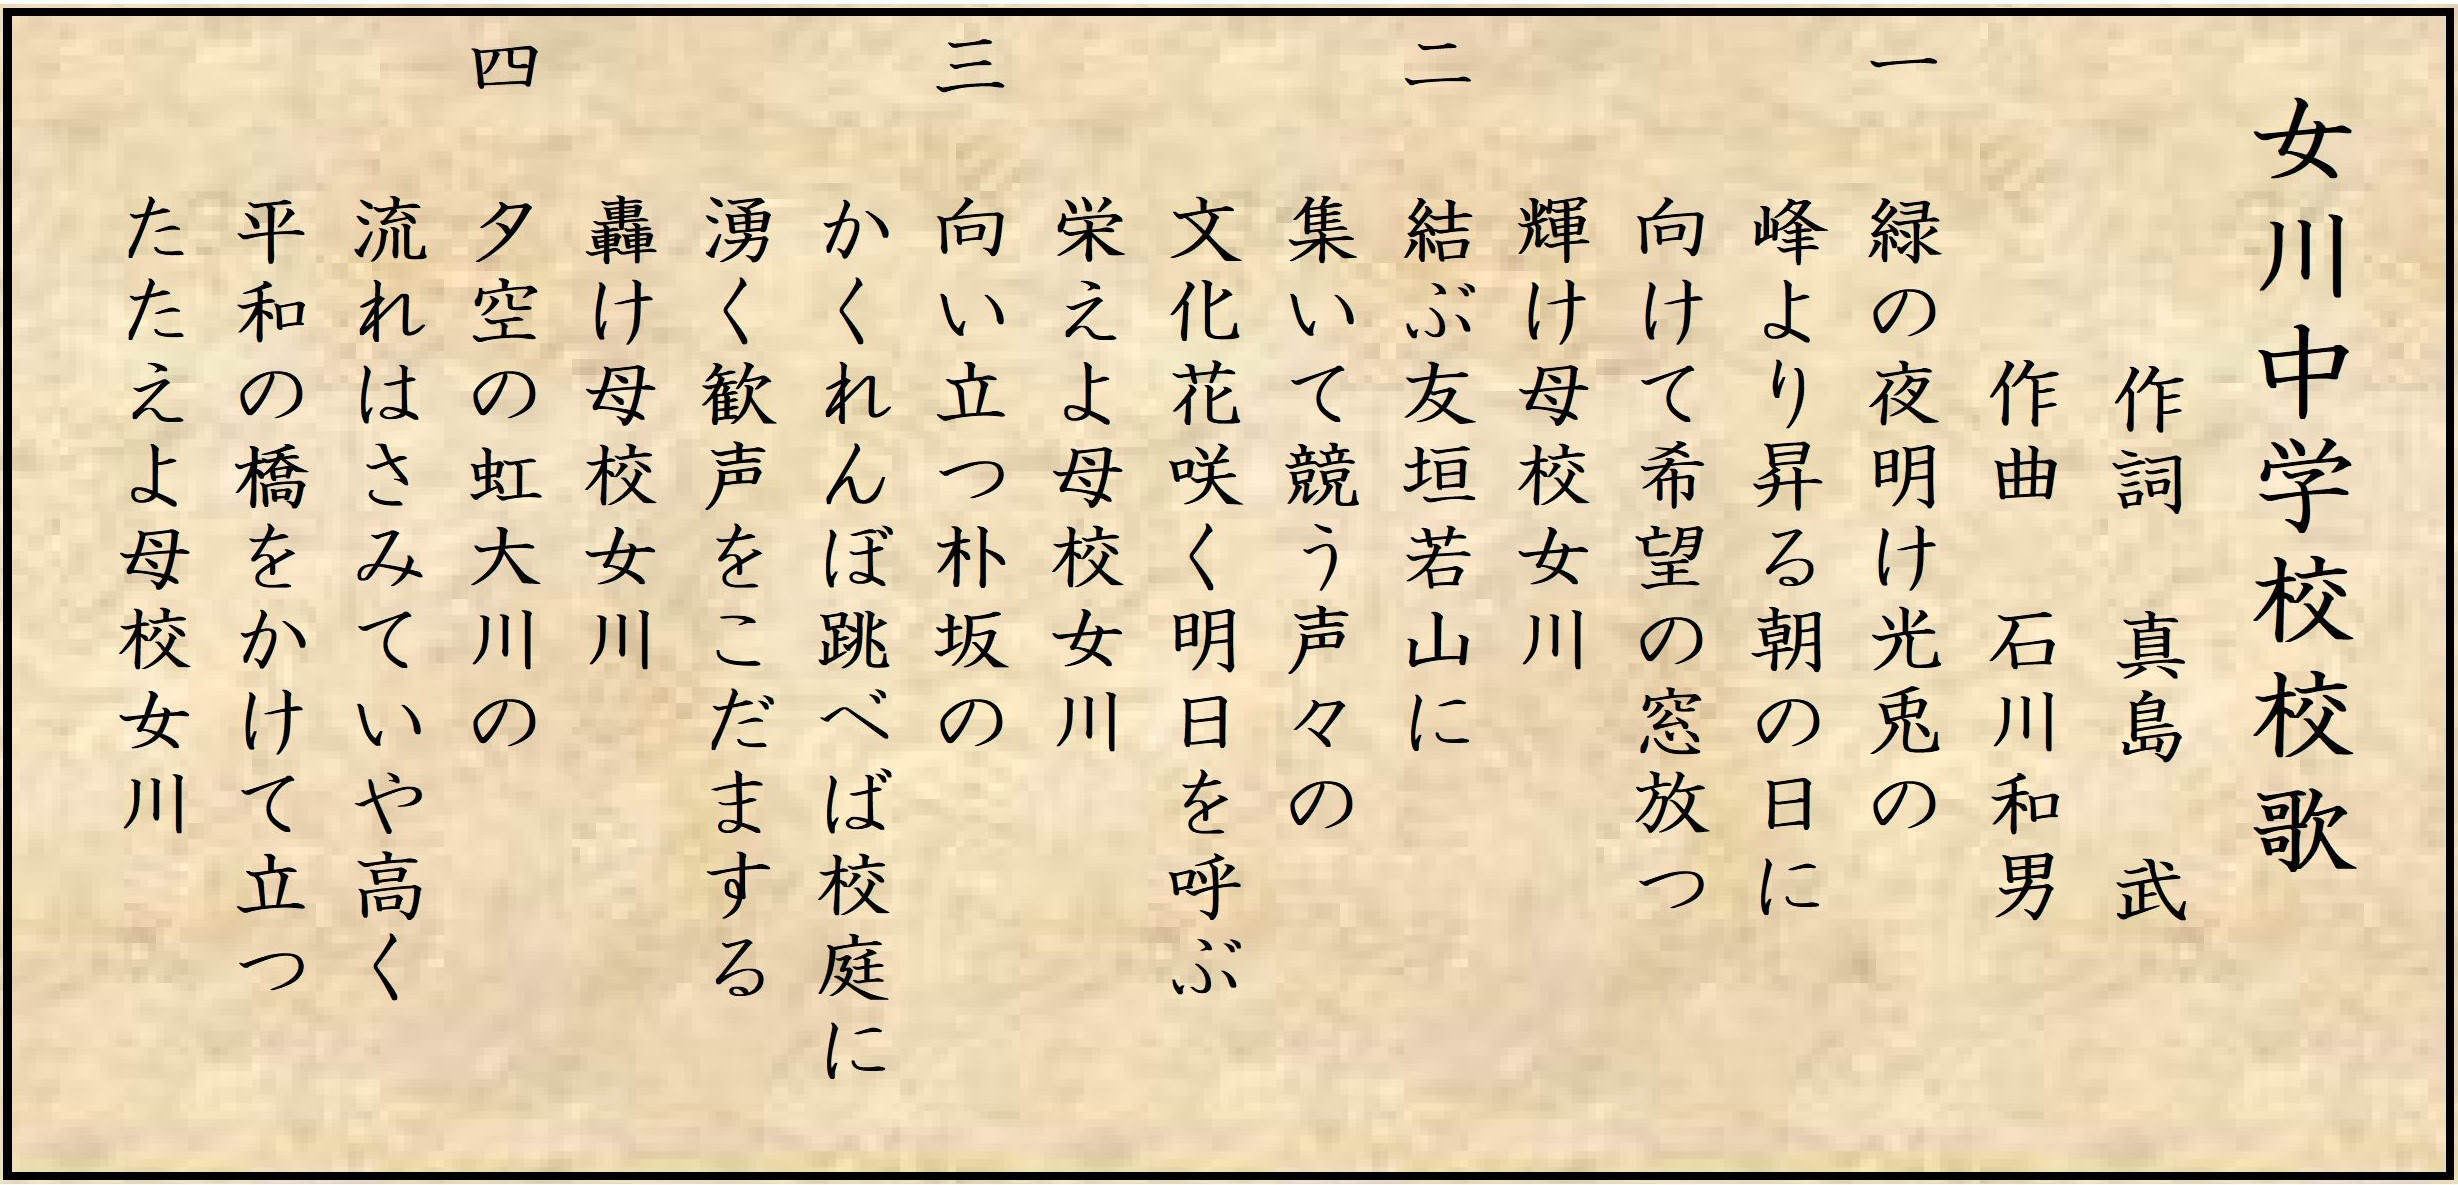 女川中学校校歌
作詞　真島　武
作曲　石川和男
一　緑の夜明け光兎の
峰より昇る朝の日に
向けて希望の窓放つ
輝け母校女川
二　結ぶ友垣若山に
集いて競う声々の
文化花咲く明日を呼ぶ
栄えよ母校女川
三　向い立つ朴坂の
かくれんぼ跳べば校庭に
湧く歓声をこだまする
轟け母校女川
四　夕空の虹大川の
流れはさみていや高く
平和の橋をかけて立つ
たたえよ母校女川